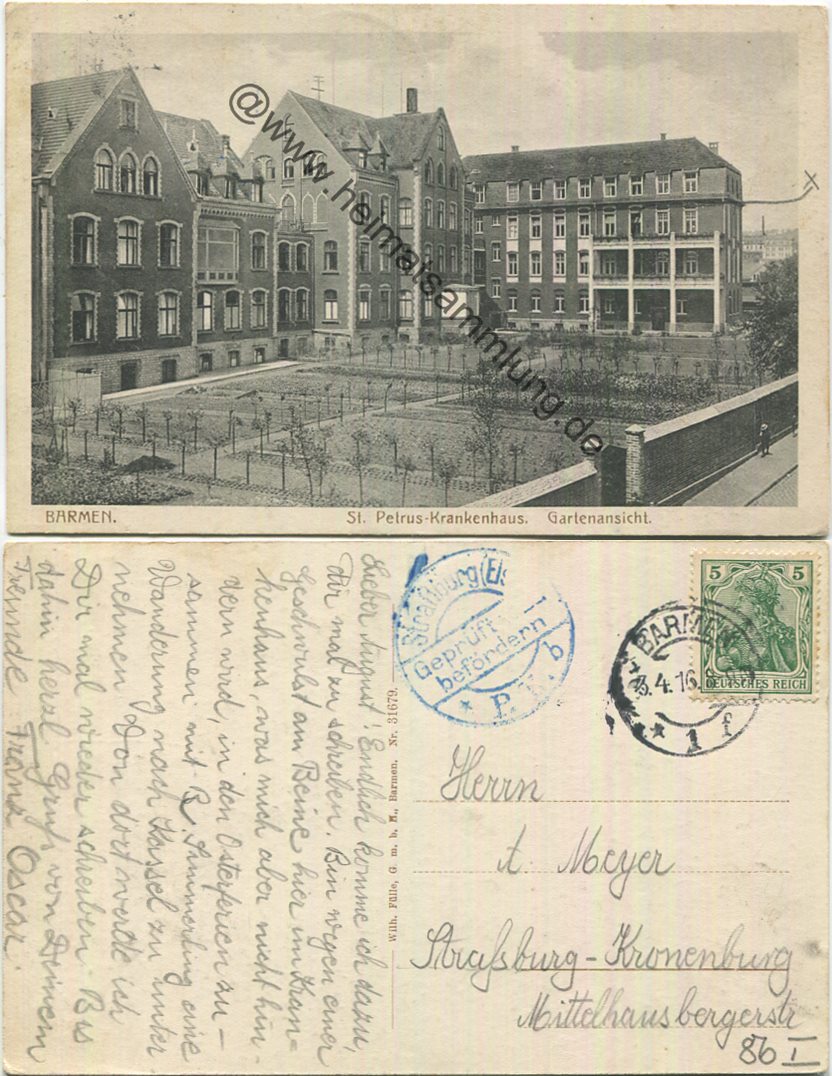 @www.heimatsammlung.de
BARMEN.
St. Petrus-Krankenhaus. Gartenansicht.
Lieber August! Endlich komme ich dazu,
Dir mal zu schreiben. Bin wegen einer
Geschwulst am Beine hier im Kran-
kenhaus, was mich aber nicht hin-
dern wird, in den Osterferien zu-
sammen mit R. Simmerling eine
Wanderung nach Kassel zu unter
nehmen. Von dort werde ich
Dir mal wieder schreiben. Bis
dahin herzl. Gruß von Deinem
Freunde Franz Oscar.
Wilh. Fülle, G. m. b. H., Barmen. Nr. 31679.
Straßburg (Els
Geprüft
befördern
* P. K. b
BARMEN
4.16.
* 1 f
5 5
DEUTSCHES REICH
Herrn
A. Meyer
Straßburg-Kronenburg
Mittelhausbergerstr
86 I